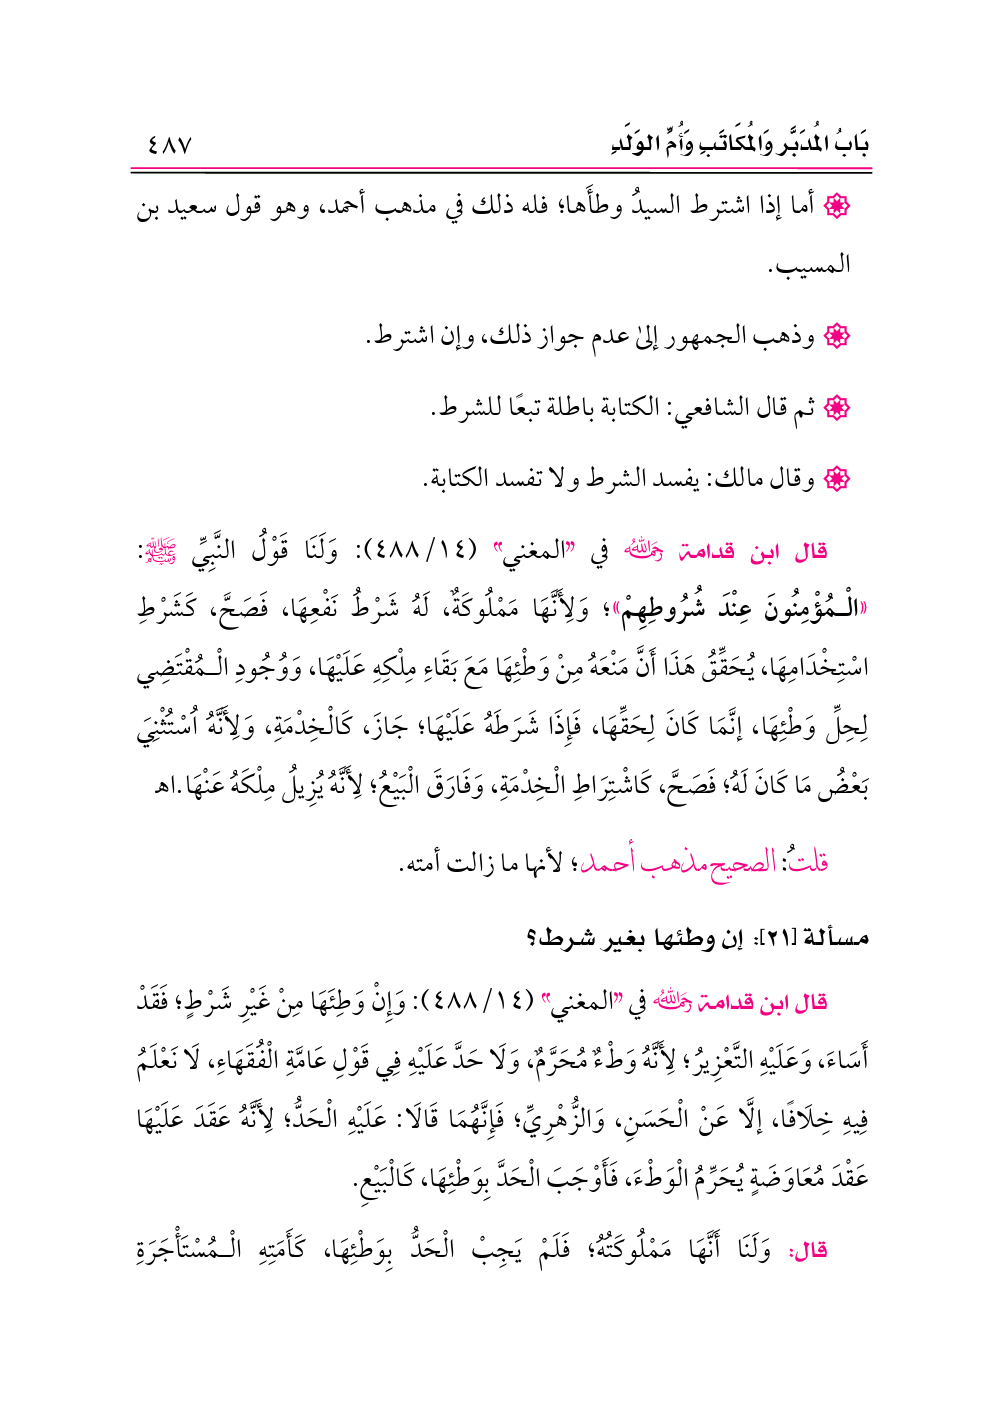 بَابُ المُدَبَّر وَالمُكَاتَبِ وَأُمِّ الوَلَدِ ٤٨٧
أما إذا اشترط السيدُ وطأَها؛ فله ذلك في مذهب أحمد، وهو قول سعيد بن
المسيب.
وذهب الجمهور إلىٰ عدم جواز ذلك، وإن اشترط.
ثم قال الشافعي: الكتابة باطلة تبعًا للشرط.
وقال مالك: يفسد الشرط ولا تفسد الكتابة.
قال ابن قدامة رَحِمَهُ اللَّهُ في "المغني" (١٤/ ٤٨٨): وَلَنَا قَوْلُ النَّبِيِّ ﷺ:
«الْـمُؤْمِنُونَ عِنْدَ شُرُوطِهِمْ»؛ وَلِأَنَّهَا مَمْلُوكَةٌ، لَهُ شَرْطُ نَفْعِهَا، فَصَحَّ، كَشَرْطِ
اسْتِخْدَامِهَا، يُحَقِّقُ هَذَا أَنَّ مَنْعَهُ مِنْ وَطْئِهَا مَعَ بَقَاءِ مِلْكِهِ عَلَيْهَا، وَوُجُودِ الْـمُقْتَضِي
لِحِلِّ وَطْئِهَا، إنَّمَا كَانَ لِحَقِّهَا، فَإِذَا شَرَطَهُ عَلَيْهَا؛ جَازَ، كَالْخِدْمَةِ، وَلِأَنَّهُ اُسْتُثْنِيَ
بَعْضُ مَا كَانَ لَهُ؛ فَصَحَّ، كَاشْتِرَاطِ الْخِدْمَةِ، وَفَارَقَ الْبَيْعُ؛ لِأَنَّهُ يُزِيلُ مِلْكَهُ عَنْهَا.اهـ
قلتُ: الصحيح مذهب أحمد؛ لأنها ما زالت أمته.
مسألة [٢١]: إن وطئها بغير شرط؟
قال ابن قدامة رَحِمَهُ اللَّهُ في "المغني" (١٤/ ٤٨٨): وَإِنْ وَطِئَهَا مِنْ غَيْرِ شَرْطٍ؛ فَقَدْ
أَسَاءَ، وَعَلَيْهِ التَّعْزِيرُ؛ لِأَنَّهُ وَطْءٌ مُحَرَّمٌ، وَلَا حَدَّ عَلَيْهِ فِي قَوْلِ عَامَّةِ الْفُقَهَاءِ، لَا نَعْلَمُ
فِيهِ خِلَافًا، إلَّا عَنْ الْحَسَنِ، وَالزُّهْرِيِّ؛ فَإِنَّهُمَا قَالَا: عَلَيْهِ الْحَدُّ؛ لِأَنَّهُ عَقَدَ عَلَيْهَا
عَقْدَ مُعَاوَضَةٍ يُحَرِّمُ الْوَطْءَ، فَأَوْجَبَ الْحَدَّ بِوَطْئِهَا، كَالْبَيْعِ.
قال: وَلَنَا أَنَّهَا مَمْلُوكَتُهُ؛ فَلَمْ يَجِبْ الْحَدُّ بِوَطْئِهَا، كَأَمَتِهِ الْـمُسْتَأْجَرَةِ